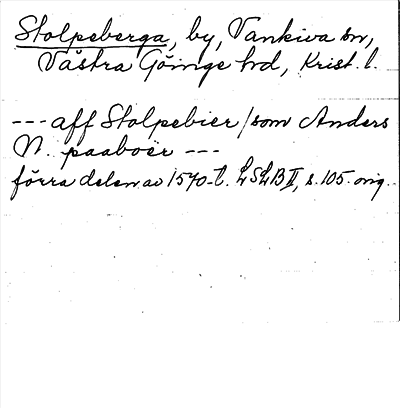 Stolpeberga, by, Vankiva sn,
Västra Göinge hrd, Krist. l.
--- aff Stolpebier / som Anders
N. paaboer ---
förra delen av 1570-t. LSLB II, s. 105. orig.